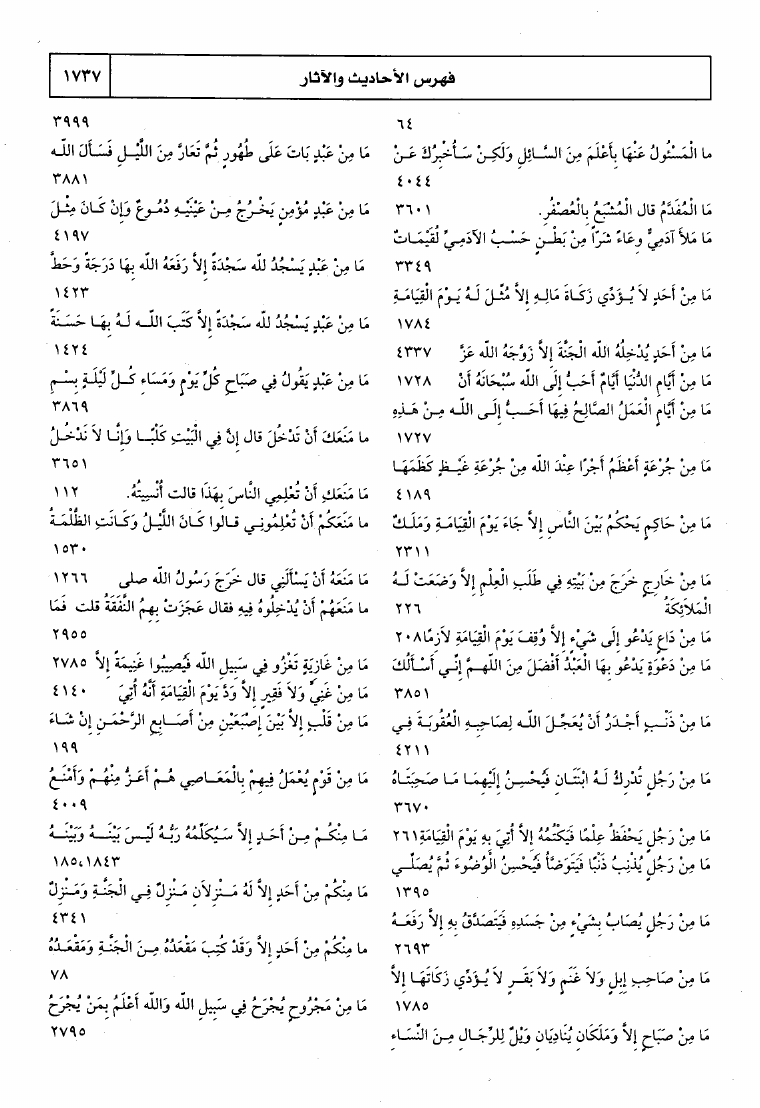 فهرس الأحاديث والآثار
١٧٣٧
٦٤
ما الْمَسْئُولُ عَنْهَا بِأَعْلَمَ مِنَ السَّائِلِ وَلَكِنْ سَأُخْبِرُكَ عَنْ
٤٠٤٤
مَا الْمُفَدَّمُ قال الْمُشْبَعُ بِالْعُصْفُرِ. ٣٦٠١
مَا مَلأَ آدَمِيٌّ وِعَاءً شَرّاً مِنْ بَطْنٍ حَسْبُ الآدَمِيِّ لُقَيْمَاتٌ
٣٣٤٩
مَا مِنْ أَحَدٍ لاَ يُؤَدِّي زَكَاةَ مَالِهِ إِلاَّ مُثِّلَ لَهُ يَوْمَ الْقِيَامَةِ
١٧٨٤
مَا مِنْ أَحَدٍ يُدْخِلُهُ الله الْجَنَّةَ إِلاَّ زَوَّجَهُ الله عَزَّ ٤٣٣٧
مَا مِنْ أَيَّامِ الدُّنْيَا أَيَّامٌ أَحَبُّ إِلَى الله سُبْحَانَهُ أَنْ ١٧٢٨
مَا مِنْ أَيَّامٍ الْعَمَلُ الصَّالِحُ فِيهَا أَحَبُّ إِلَى اللـه مِنْ هَذِهِ
١٧٢٧
مَا مِنْ جُرْعَةٍ أَعْظَمُ أَجْرًا عِنْدَ الله مِنْ جُرْعَةِ غَيْظٍ كَظَمَهَا
٤١٨٩
مَا مِنْ حَاكِمٍ يَحْكُمُ بَيْنَ النَّاسِ إِلاَّ جَاءَ يَوْمَ الْقِيَامَةِ وَمَلَكٌ
٢٣١١
مَا مِنْ خَارِجٍ خَرَجَ مِنْ بَيْتِهِ فِي طَلَبِ الْعِلْمِ إِلاَّ وَضَعَتْ لَهُ
الْمَلاَئِكَةُ ٢٢٦
مَا مِنْ دَاعٍ يَدْعُو إِلَى شَيْءٍ إِلاَّ وُقِفَ يَوْمَ الْقِيَامَةِ لاَزِمًا ٢٠٨
مَا مِنْ دَعْوَةٍ يَدْعُو بِهَا الْعَبْدُ أَفْضَلَ مِنَ اللَّهمَّ إِنِّي أَسْأَلُكَ
٣٨٥١
مَا مِنْ ذَنْبٍ أَجْدَرُ أَنْ يُعَجِّلَ اللـه لِصَاحِبِهِ الْعُقُوبَةَ فِي
٤٢١١
مَا مِنْ رَجُلٍ تُدْرِكُ لَهُ ابْنَتَانِ فَيُحْسِنُ إِلَيْهِمَا مَا صَحِبَتَاهُ
٣٦٧٠
مَا مِنْ رَجُلٍ يَحْفَظُ عِلْمًا فَيَكْتُمُهُ إِلاَّ أُتِيَ بِهِ يَوْمَ الْقِيَامَةِ ٢٦١
مَا مِنْ رَجُلٍ يُذْنِبُ ذَنْبًا فَيَتَوَضَّأُ فَيُحْسِنُ الْوُضُوءَ ثُمَّ يُصَلِّي
١٣٩٥
مَا مِنْ رَجُلٍ يُصَابُ بِشَيْءٍ مِنْ جَسَدِهِ فَيَتَصَدَّقُ بِهِ إِلاَّ رَفَعَهُ
٢٦٩٣
مَا مِنْ صَاحِبِ إِبِلٍ وَلاَ غَنَمٍ وَلاَ بَقَرٍ لاَ يُؤَدِّي زَكَاتَهَا إِلاَّ
١٧٨٥
مَا مِنْ صَبَاحٍ إِلاَّ وَمَلَكَانِ يُنَادِيَانِ وَيْلٌ لِلرِّجَالِ مِنَ النِّسَاءِ
٣٩٩٩
مَا مِنْ عَبْدٍ بَاتَ عَلَى طُهُورٍ ثُمَّ تَعَارَّ مِنَ اللَّيْلِ فَسَأَلَ اللـه
٣٨٨١
مَا مِنْ عَبْدٍ مُؤْمِنٍ يَخْرُجُ مِنْ عَيْنَيْهِ دُمُوعٌ وَإِنْ كَانَ مِثْلَ
٤١٩٧
مَا مِنْ عَبْدٍ يَسْجُدُ لله سَجْدَةً إِلاَّ رَفَعَهُ الله بِهَا دَرَجَةً وَحَطَّ
١٤٢٣
مَا مِنْ عَبْدٍ يَسْجُدُ لله سَجْدَةً إِلاَّ كَتَبَ اللـه لَهُ بِهَا حَسَنَةً
١٤٢٤
مَا مِنْ عَبْدٍ يَقُولُ فِي صَبَاحِ كُلِّ يَوْمٍ وَمَسَاءِ كُلِّ لَيْلَةٍ بِسْمِ
٣٨٦٩
ما مَنَعَكَ أَنْ تَدْخُلَ قال إِنَّ فِي الْبَيْتِ كَلْبًا وَإِنَّا لاَ نَدْخُلُ
٣٦٥١
مَا مَنَعَكِ أَنْ تُعْلِمِي النَّاسَ بِهَذَا قالت أُنْسِيتُهُ. ١١٢
ما مَنَعَكُمْ أَنْ تُعْلِمُونِي قالوا كَانَ اللَّيْلُ وَكَانَتِ الظُّلْمَةُ
١٥٣٠
مَا مَنَعَهُ أَنْ يَسْأَلَنِي قال خَرَجَ رَسُولُ الله صلى ١٢٦٦
ما مَنَعَهُمْ أَنْ يُدْخِلُوهُ فِيهِ فقال عَجَزَتْ بِهِمُ النَّفَقَةُ قلت فَمَا
٢٩٥٥
مَا مِنْ غَازِيَةٍ تَغْزُو فِي سَبِيلِ الله فَيُصِيبُوا غَنِيمَةً إِلاَّ ٢٧٨٥
مَا مِنْ غَنِيٍّ وَلاَ فَقِيرٍ إِلاَّ وَدَّ يَوْمَ الْقِيَامَةِ أَنَّهُ أُتِيَ ٤١٤٠
مَا مِنْ قَلْبٍ إِلاَّ بَيْنَ إِصْبَعَيْنِ مِنْ أَصَابِعِ الرَّحْمَنِ إِنْ شَاءَ
١٩٩
مَا مِنْ قَوْمٍ يُعْمَلُ فِيهِمْ بِالْمَعَاصِي هُمْ أَعَزُّ مِنْهُمْ وَأَمْنَعُ
٤٠٠٩
مَا مِنْكُمْ مِنْ أَحَدٍ إِلاَّ سَيُكَلِّمُهُ رَبُّهُ لَيْسَ بَيْنَهُ وَبَيْنَهُ
١٨٤٣،١٨٥
مَا مِنْكُمْ مِنْ أَحَدٍ إِلاَّ لَهُ مَنْزِلاَنِ مَنْزِلٌ فِي الْجَنَّةِ وَمَنْزِلٌ
٤٣٤١
ما مِنْكُمْ مِنْ أَحَدٍ إِلاَّ وَقَدْ كُتِبَ مَقْعَدُهُ مِنَ الْجَنَّةِ وَمَقْعَدُهُ
٧٨
مَا مِنْ مَجْرُوحٍ يُجْرَحُ فِي سَبِيلِ الله وَالله أَعْلَمُ بِمَنْ يُجْرَحُ
٢٧٩٥